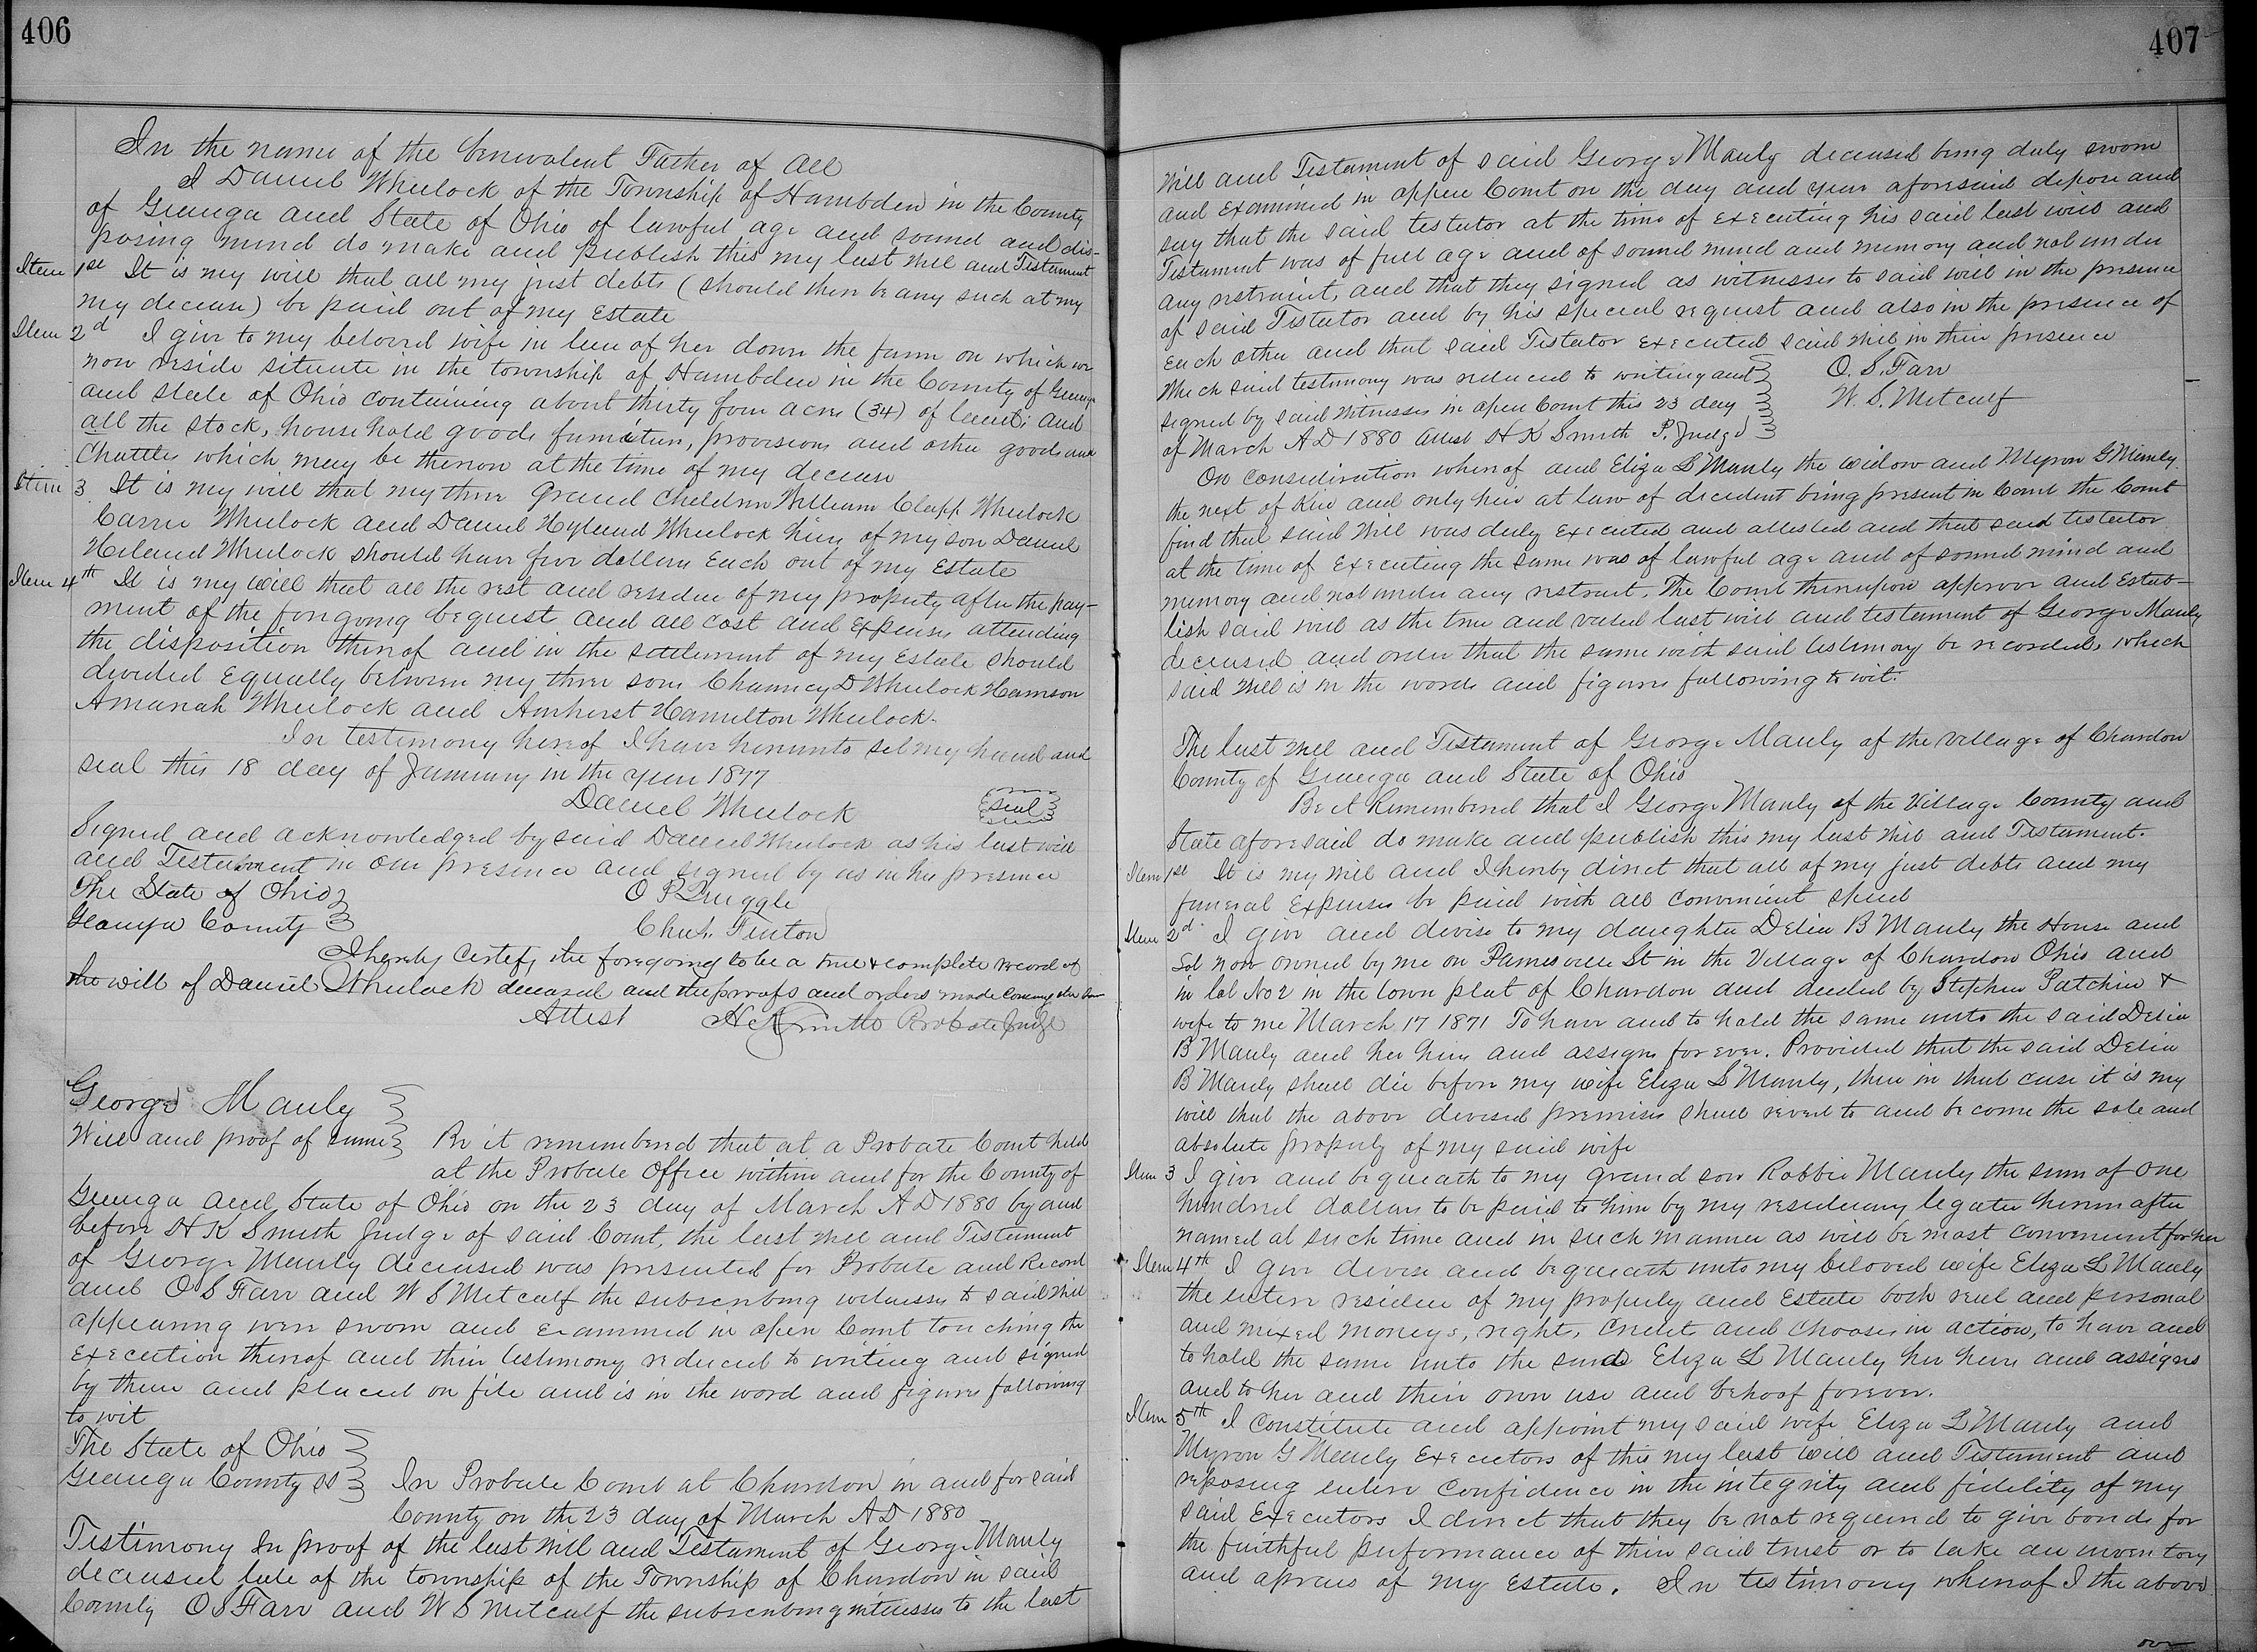 406
In the name of the benevolent Father of all
I Daniel Wheelock of the Township of Hambden in the County
of Geauga and State of Ohio of lawful age and sound and dis-
posing mind do make and publish this my last Will and Testament
Item 1st It is my will that all my just debts (should there be any such at my
my decease) be paid out of my Estate
Item 2d I give to my beloved wife in lieu of her dower the farm on which we
now reside situate in the township of Hambden in the County of Geauga
and State of Ohio containing about thirty four acres (34) of land; and
all the stock, household goods furniture, provisions and other goods and
Chattles which may be thereon at the time of my decease
Item 3 It is my will that my three Grand Children William Clapp Wheelock
Carrie Wheelock and Daniel Hyland Wheelock heirs of my son Daniel
Heland Wheelock should have five dollars Each out of my Estate
Item 4th It is my will that all the rest and residue of my property after the pay-
ment of the foregoing bequest and all cost and Expenses attending
the disposition thereof and in the settlement of my Estate should
devided Equally between my three sons Chauncy D Wheelock Harrison
Amariah Wheelock and Amherst Hamilton Wheelock.
In testimony hereof I have hereunto set my hand and
seal this 18 day of January in the year 1877
Daniel Wheelock seal
Signed and acknowledged by said Daniel Wheelock as his last will
and Testament in our presence and signed by us in his presence
The State of Ohio O P Quiggle
Geauga County Chas. Finton
I hereby Certify the foregoing to be a true & complete record of
the will of Daniel Wheelock deceased and the proofs and orders made
Attest H K Smith Probate Judge
George Manly
Will and proof of same Be it remembered that at a Probate Court held
at the Probate Office within and for the County of
Geauga and State of Ohio on the 23 day of March AD 1880 by and
before H K Smith Judge of said Court, the last Will and Testament
of George Manly deceased was presented for Probate and Record
and O S Farr and W S Metcalf the subscribing witnesses to said Will
appearing were sworn and Examined in open Court touching the
Execution thereof and their testimony reduced to writing and signed
by them and placed on file and is in the word and figures following
to wit
The State of Ohio
Geauga County SS In Probate Court at Chardon in and for said
County on the 23 day of March AD 1880
Testimony In proof of the last Will and Testament of George Manly
deceased late of the township of the Township of Chardon in said
County O S Farr and W S Metcalf the subscribing witnesses to the last
407
Will and Testament of said George Manly deceased being duly sworn
and Examined in oppen Court on the day and year aforesaid depose and
say that the said testator at the time of Executing his said last will and
Testament was of full age and of sound mind and memory and not under
any restraint, and that they signed as witnesses to said will in the presence
of said Testator and by his special request and also in the presence of
Each other and that said Testator Executed said Will in their presence
Which said testimony was reduced to writing and O. S. Farr
signed by said Witnesses in open Court this 23 day W. S. Metcalf
of March AD 1880 Attest H K Smith P. Judge
On Consideration whereof and Eliza L Manly the widow and Myron G Manly
the next of Kin and only heir at law of decedent being present in Court the Court
find that said Will was duly Executed and attested and that said testator
at the time of Executing the same was of lawful age and of sound mind and
memory and not under any restraint. The Court thereupon approve and Estab-
lish said will as the true and valid last will and testament of George Manly
deceased and order that the same with said testimony be recorded, which
said Will is in the words and figures following to wit:
The last Will and Testament of George Manly of the village of Chardon
County of Geauga and State of Ohio
Be it Remembered that I George Manly of the Village County and
State aforesaid do make and publish this my last Will and Testament.
Item 1st It is my will and I hereby direct that all of my just debts and my
funeral Expenses be paid with all convenient speed
Item 2d I give and devise to my daughter Delia B Manly the House and
Lot now owned by me on Painesville St in the Village of Chardon Ohio and
in lot No 2 in the town plat of Chardon and deeded by Stephen Patchin &
wife to me March 17 1871 To have and to hold the same unto the said Delia
B Manly and her heirs and assigns for ever. Provided that the said Delia
B Manly shall die before my wife Eliza L Manly, then in that case it is my
will that the above devised premises shall revert to and become the sole and
absolute property of my said wife
Item 3 I give and bequeath to my grand son Robbie Manly the sum of one
hundred dollars to be paid to him by my residuary legatee hereinafter
named at such time and in such manner as will be most convenient for her
Item 4th I give devise and bequeath unto my beloved wife Eliza L Manly
the entire residue of my property and Estate both real and personal
and mixed moneys, rights, Credits and Chooses in action, to have and
to hold the same unto the said Eliza L Manly her heirs and assigns
and to her and their own use and behoof forever.
Item 5th I Constitute and appoint my said wife Eliza L Manly and
Myron G Manly Executors of this my last Will and Testament and
reposing entire Confidence in the integrity and fidelity of my
said Executors I direct that they be not required to give bonds for
the faithful performance of their said trust or to take an inventory
and aprais of my Estate. In testimony whereof I the above
over